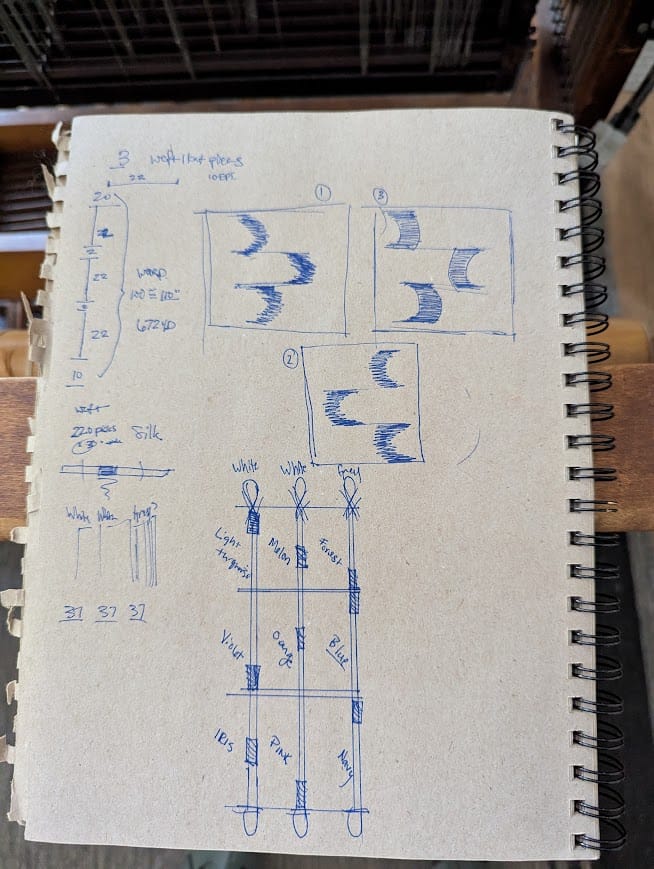 3 weft/kat pieces
22
10 EPI
20
22
22
10
WARP
120 = 120"
672 YD
①
③
②
weft
220 picks
Silk
White White Grey?
37 37 37
White White Grey
Light turquoise Melon Forest
Violet Orange Blue
IRIS Pink Navy